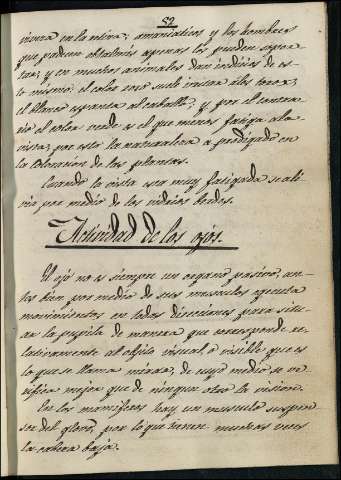 52
vivera en la retina; amaraticos y los hombres
que padecen obtalmias apenas los pueden sopor-
tar; y en muchos animales dan indicios de es-
to mismo: el color rojo suele irritar á los toros;
el blanco espanta al caballo; y por el contra-
rio el color verde es el que menos fatiga a la
vista; por esto la naturaleza a prodigado en
la coloracion de las plantas.
Cuando la vista esta muy fatigada se ali-
via por medio de los vidrios verdes.
Actividad de los ojos.
El ojo no es siempre un organo pasivo, an-
tes bien por medio de sus musculos ejecuta
movimientos en todas direcciones para situ-
ar la pupila de manera que corresponde re-
lativamente al objeto visual, ó visible que es
lo que se llama mirar, de cuyo medio se ve-
rifica mejor que de ninguno otro la vision.
En los mamiferos hay un musculo suspen-
sor del globo, por lo que tienen muchas veces
la cabeza baja.